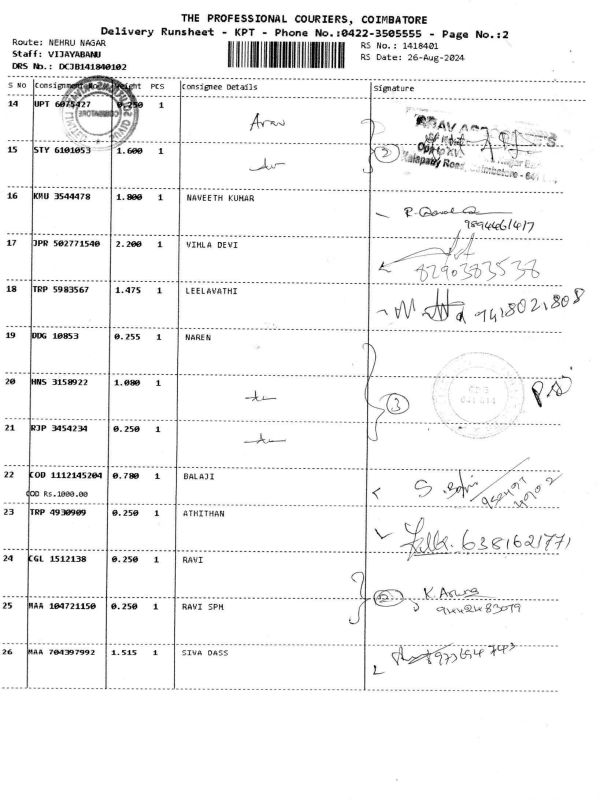 THE PROFESSIONAL COURIERS, COIMBATORE
Delivery Runsheet - KPT - Phone No.:0422-3505555 - Page No.:2
Route: NEHRU NAGAR
RS No.: 1418401
Staff: VIJAYABANU
RS Date: 26-Aug-2024
DRS No.: DCJB141840102
S NO Consignment No Weight PCS Consignee Details Signature
14 UPT 6075427 0.250 1
15 STY 6101053 1.600 1 2
16 KMU 3544478 1.800 1 NAVEETH KUMAR
9894461417
17 JPR 502771540 2.200 1 VIMLA DEVI
8290383538
18 TRP 5983567 1.475 1 LEELAVATHI
9418021808
19 DDG 10853 0.255 1 NAREN
20 HNS 3158922 1.080 1
3
21 RJP 3454234 0.250 1
22 COD 1112145204 0.780 1 BALAJI
COD Rs.1000.00
23 TRP 4930909 0.250 1 ATHITHAN
6381621771
24 CGL 1512138 0.250 1 RAVI
2
25 MAA 104721150 0.250 1 RAVI SPM
9442483079
26 MAA 704397992 1.515 1 SIVA DASS